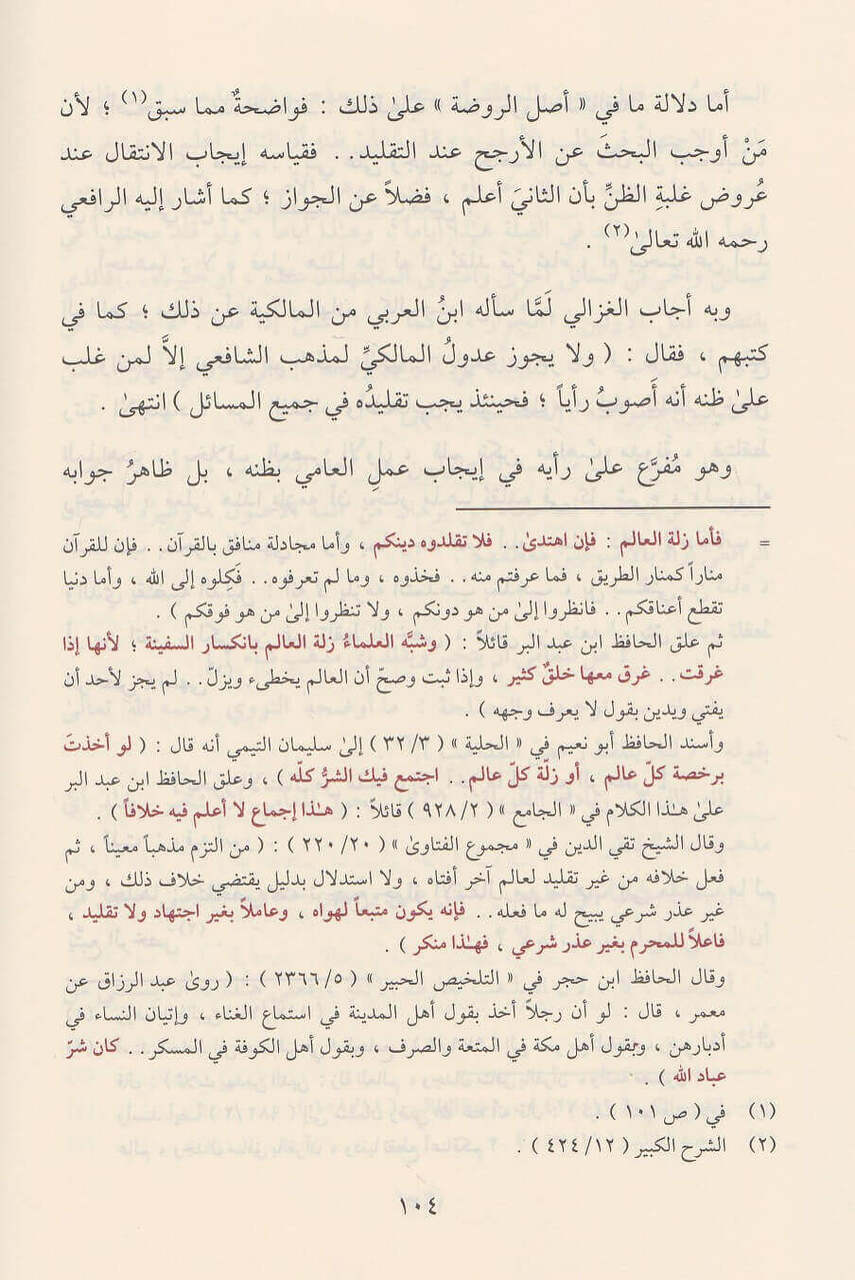 أما دلالة ما في « أصل الروضة » علىٰ ذلك : فواضحةٌ مما سبق(١) ؛ لأن
مَنْ أوجب البحثَ عن الأرجح عند التقليد.. فقياسه إيجاب الانتقال عند
عُروض غلبةِ الظنِّ بأن الثانيَ أعلم ، فضلاً عن الجواز ؛ كما أشار إليه الرافعي
رحمه الله تعالىٰ(٢) .
وبه أجاب الغزالي لَمَّا سأله ابنُ العربي من المالكية عن ذلك ؛ كما في
كتبهم ، فقال : ( ولا يجوز عدولُ المالكيِّ لمذهب الشافعي إلاَّ لمن غلب
علىٰ ظنه أنه أَصوبُ رأياً ؛ فحينئذ يجب تقليدُه في جميع المسائل ) انتهىٰ .
وهو مُفرَّع علىٰ رأيه في إيجاب عملِ العامي بظنه ، بل ظاهرُ جوابه
= فأما زلة العالم : فإن اهتدىٰ.. فلا تقلدوه دينكم ، وأما مجادلة منافق بالقرآن.. فإن للقرآن
مناراً كمنار الطريق ، فما عرفتم منه.. فخذوه ، وما لم تعرفوه.. فَكِلوه إلى الله ، وأما دنيا
تقطع أعناقكم.. فانظروا إلىٰ من هو دونكم ، ولا تنظروا إلىٰ من هو فوقكم ) .
ثم علق الحافظ ابن عبد البر قائلاً : ( وشبَّه العلماءُ زلة العالم بانكسار السفينة ؛ لأنها إذا
غرقت.. غرق معها خلقٌ كثير ، وإذا ثبت وصحّ أن العالم يخطىء ويزلّ.. لم يجز لأحد أن
يفتي ويدين بقول لا يعرف وجهه ) .
وأسند الحافظ أبو نعيم في « الحلية » ( ٣٢/٣ ) إلىٰ سليمان التيمي أنه قال : ( لو أخذتَ
برخصة كلّ عالم ، أو زلّة كلّ عالم.. اجتمع فيك الشرُّ كلّه ) ، وعلق الحافظ ابن عبد البر
علىٰ هـٰذا الكلام في « الجامع » ( ٩٢٨/٢ ) قائلاً : ( هـٰذا إجماع لا أعلم فيه خلافاً ) .
وقال الشيخ تقي الدين في « مجموع الفتاوىٰ » ( ٢٢٠/٢٠ ) : ( من التزم مذهباً معيناً ، ثم
فعل خلافه من غير تقليد لعالم آخر أفتاه ، ولا استدلال بدليل يقتضي خلاف ذلك ، ومن
غير عذر شرعي يبيح له ما فعله.. فإنه يكون متبعاً لهواه ، وعاملاً بغير اجتهاد ولا تقليد ،
فاعلاً للمحرم بغير عذر شرعي ، فهـٰذا منكر ) .
وقال الحافظ ابن حجر في « التلخيص الحبير » ( ٢٣٦٦/٥ ) : ( روىٰ عبد الرزاق عن
معمر ، قال : لو أن رجلاً أخذ بقول أهل المدينة في استماع الغناء ، وإتيان النساء في
أدبارهن ، وبقول أهل مكة في المتعة والصرف ، وبقول أهل الكوفة في المسكر.. كان شرّ
عباد الله ) .
(١) في ( ص ١٠١ ) .
(٢) الشرح الكبير ( ٤٢٤/١٢ ) .
١٠٤